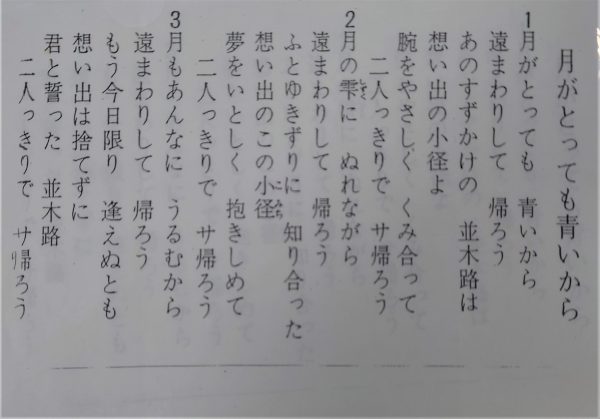 月がとっても青いから
1月がとっても 青いから
遠まわりして 帰ろう
あのすずかけの 並木路は
想い出の小径よ
腕をやさしく くみ合って
二人っきりで サ帰ろう
2月の雫に ぬれながら
遠まわりして 帰ろう
ふとゆきずりに 知り合った
想い出のこの小径
夢をいとしく 抱きしめて
二人っきりで サ帰ろう
3月もあんなに うるむから
遠まわりして 帰ろう
もう今日限り 逢えぬとも
想い出は捨てずに
君と誓った 並木路
二人っきりで サ帰ろう